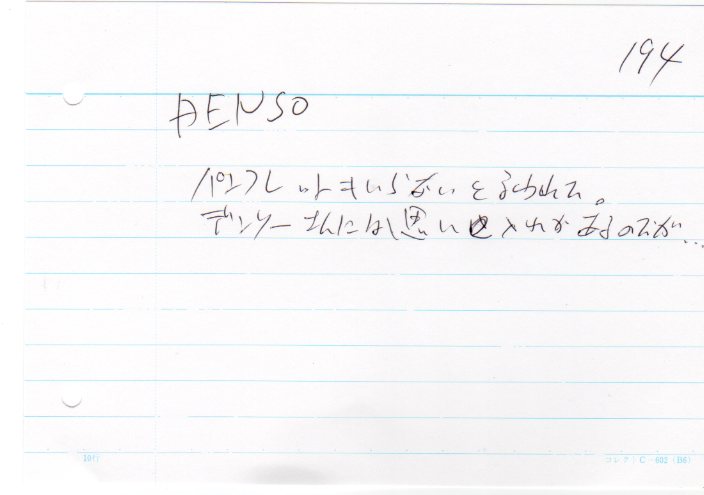 194
DENSO
パンフレットもいらないと言われた。
デンソーさんには思い入れがあるのだが…
10行
コレクト C-602 (B6)